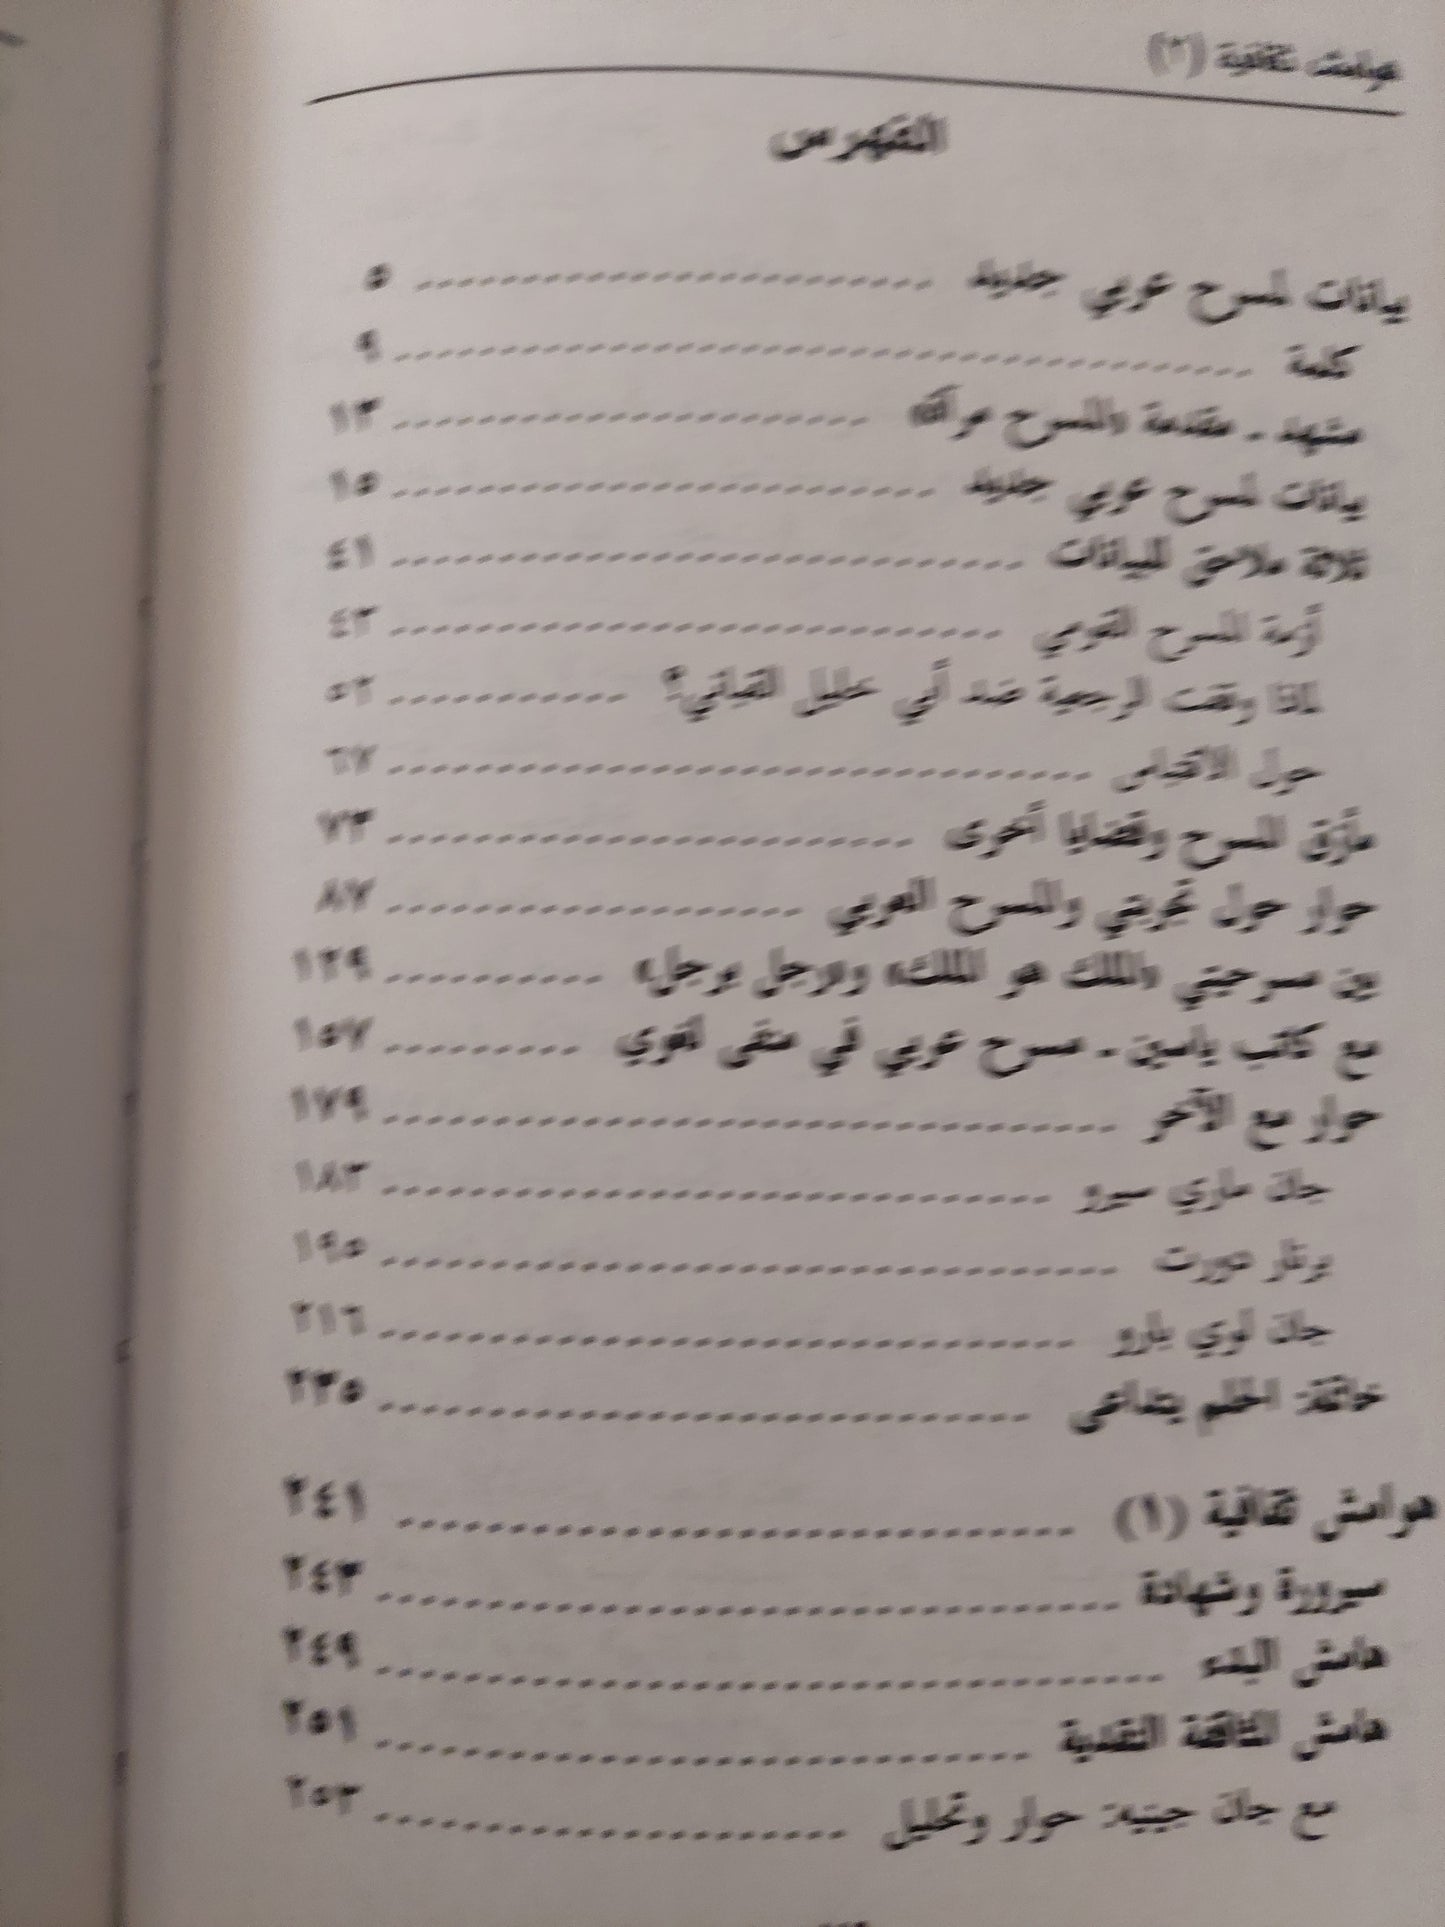 هوامش ثقافية (٢)
الفهرس
بيانات لمسرح عربي جديد ........ ٥
كلمة ........ ٩
مشهد - مقدمة «المسرح مرآة» ........ ١٣
بيانات لمسرح عربي جديد ........ ١٥
ثلاثة ملاحق للبيانات ........ ٤١
أزمة المسرح القومي ........ ٤٣
لماذا وقفت الرجعية ضد أبي خليل القباني؟ ........ ٥٢
حول الاقتباس ........ ٦٧
مأزق المسرح وقضايا أخرى ........ ٧٣
حوار حول تجربتي والمسرح العربي ........ ٨٧
بين مسرحيتي «الملك هو الملك» و«رجل برجل» ........ ١٢٩
مع كاتب ياسين - مسرح عربي في منفى لغوي ........ ١٥٧
حوار مع الآخر ........ ١٧٩
جان ماري سيرو ........ ١٨٣
برنار دورت ........ ١٩٥
جان لوي بارو ........ ٢١٦
خاتمة: الحلم يتداعى ........ ٢٣٥
هوامش ثقافية (١) ........ ٢٤١
سيرورة وشهادة ........ ٢٤٣
هامش البدء ........ ٢٤٩
هامش الثقافة النقدية ........ ٢٥١
مع جان جينيه: حوار وتحليل ........ ٢٥٣